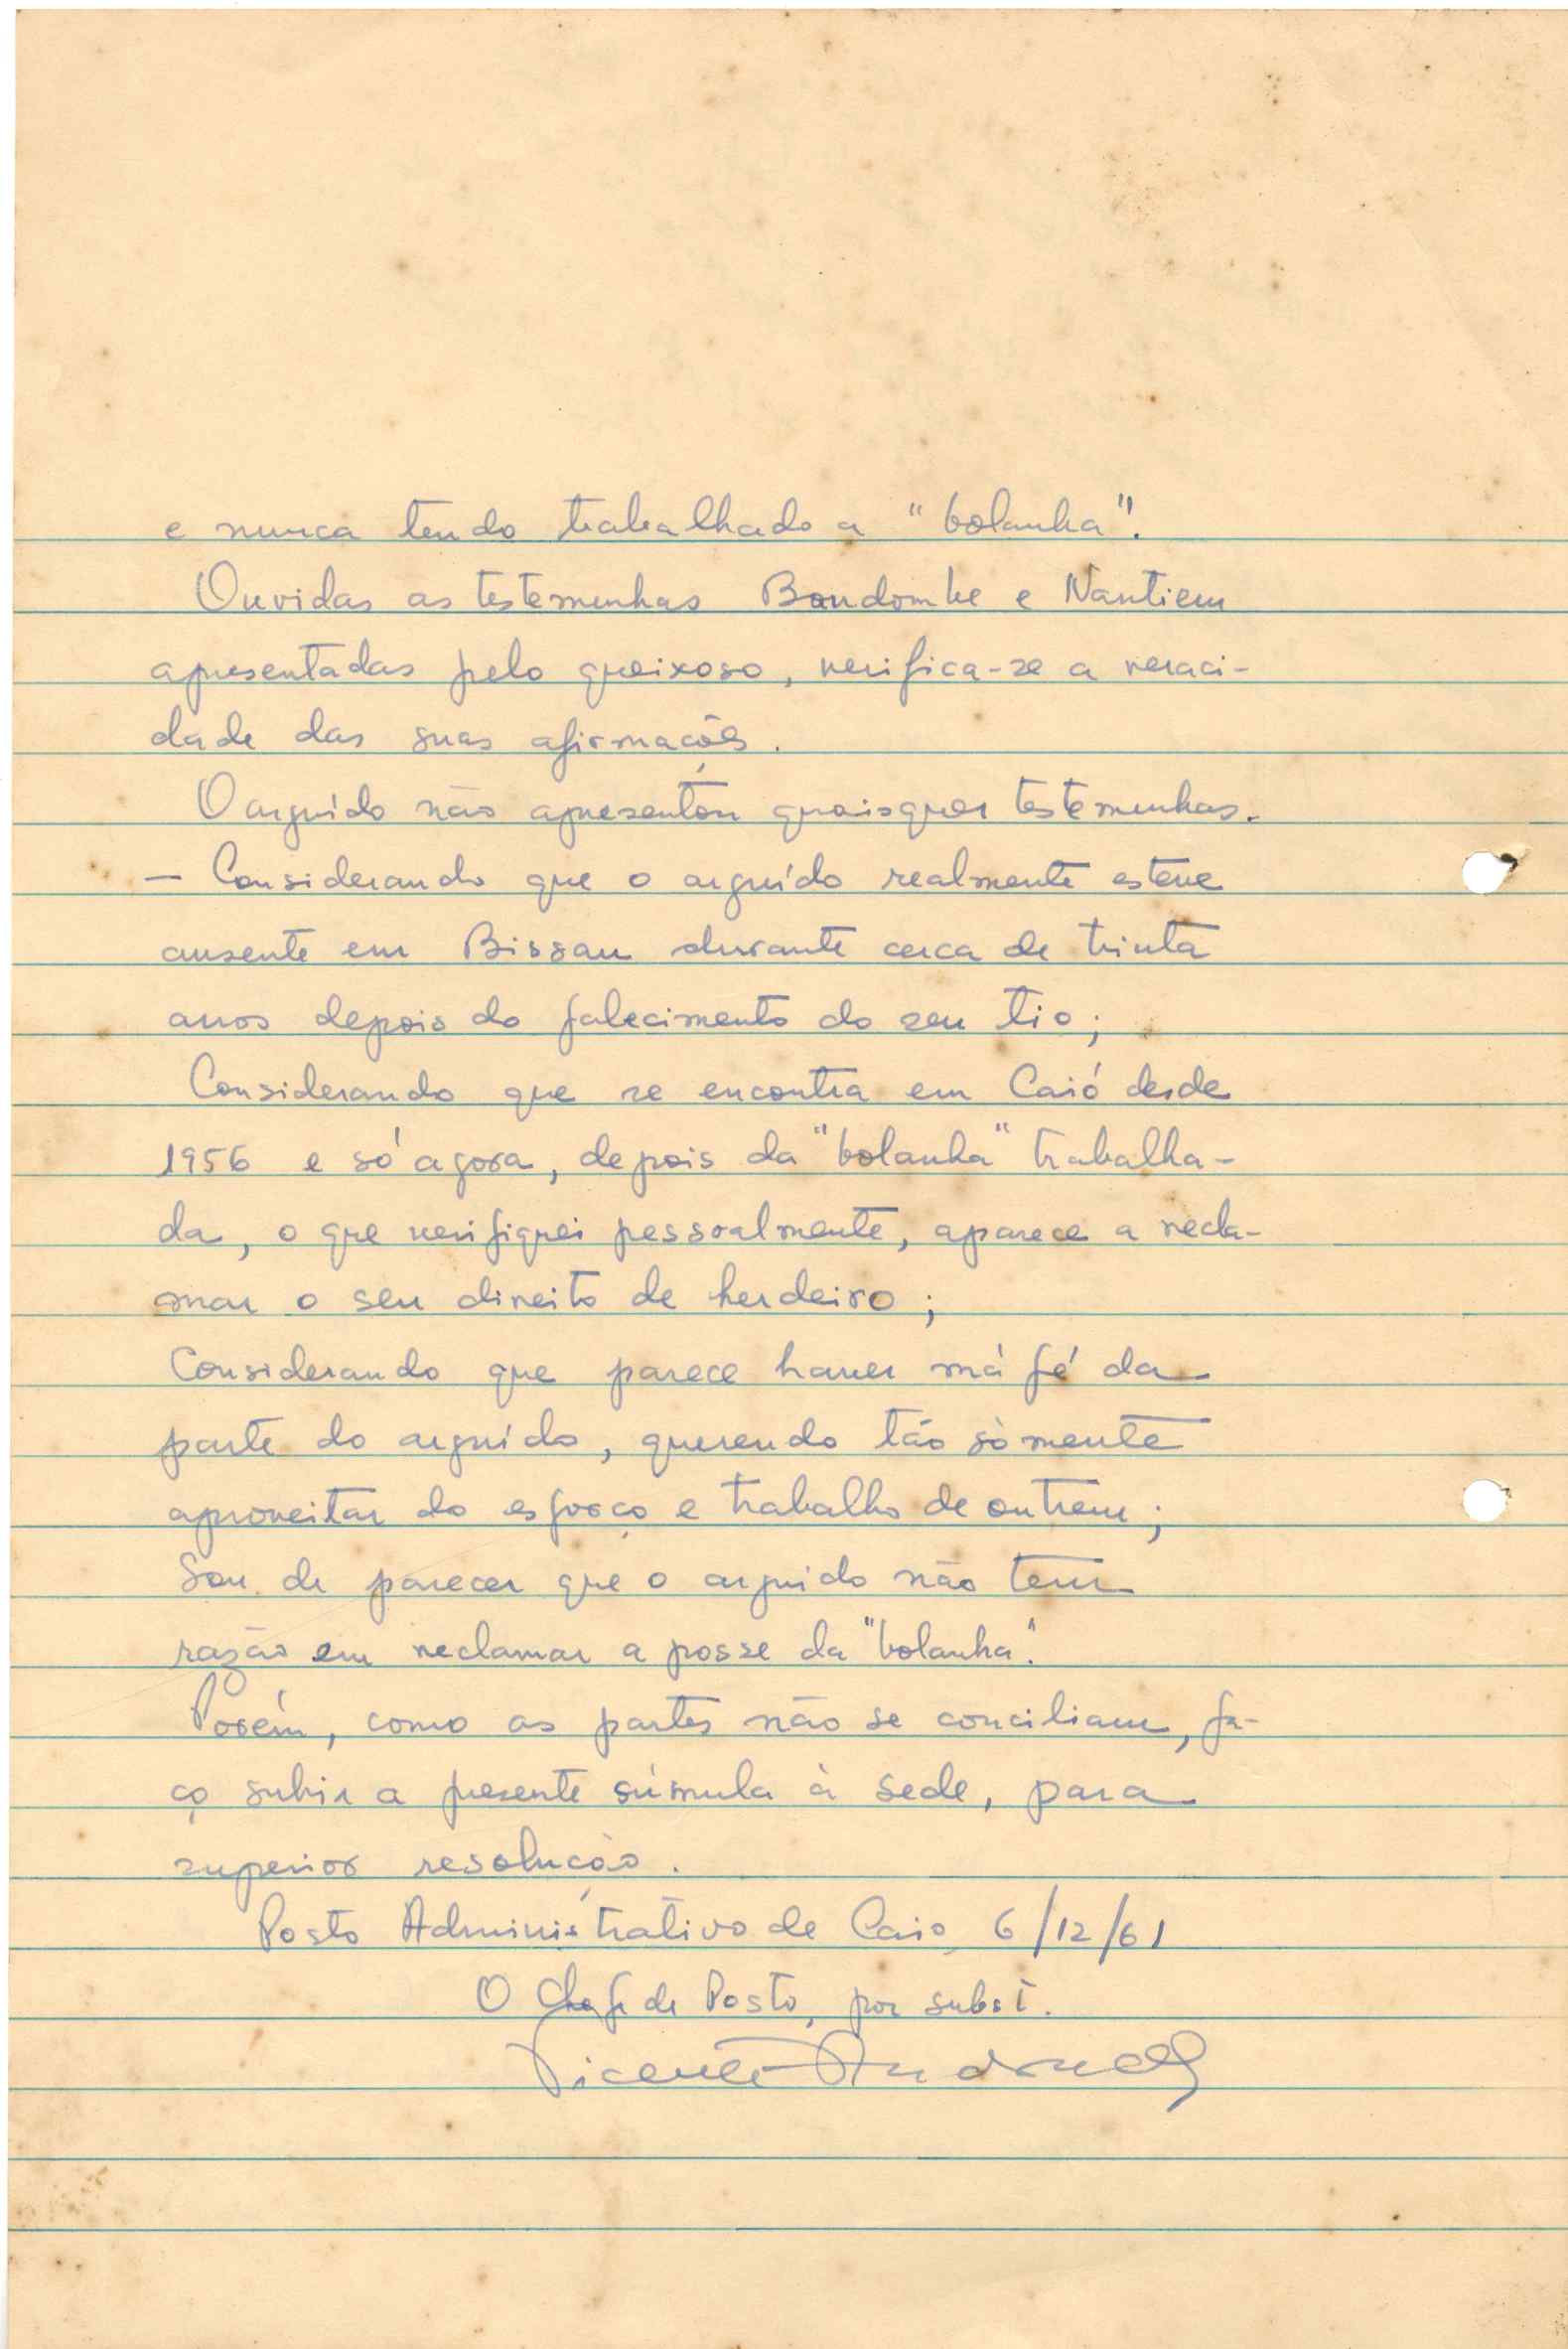 e nunca tendo trabalhado a "bolanha".
Ouvidas as testemunhas Bondombe e Nantiem
apresentadas pelo queixoso, verifica-se a veraci-
dade das suas afirmações.
O arguido não apresentou quaisquer testemunhas.
— Considerando que o arguido realmente esteve
ausente em Bissau durante cerca de trinta
anos depois do falecimento do seu tio;
Considerando que se encontra em Caió desde
1956 e só agora, depois da "bolanha" trabalha-
da, o que verifiquei pessoalmente, aparece a recla-
mar o seu direito de herdeiro;
Considerando que parece haver má fé da
parte do arguido, querendo tão sòmente
aproveitar do esforço e trabalho de outrem;
Sou de parecer que o arguido não tem
razão em reclamar a posse da "bolanha".
Porém, como as partes não se conciliam, fa-
ço subir a presente súmula à sede, para
superior resolução.
Posto Administrativo de Caio, 6/12/61
O Chefe de Posto, por subst.
Vicente